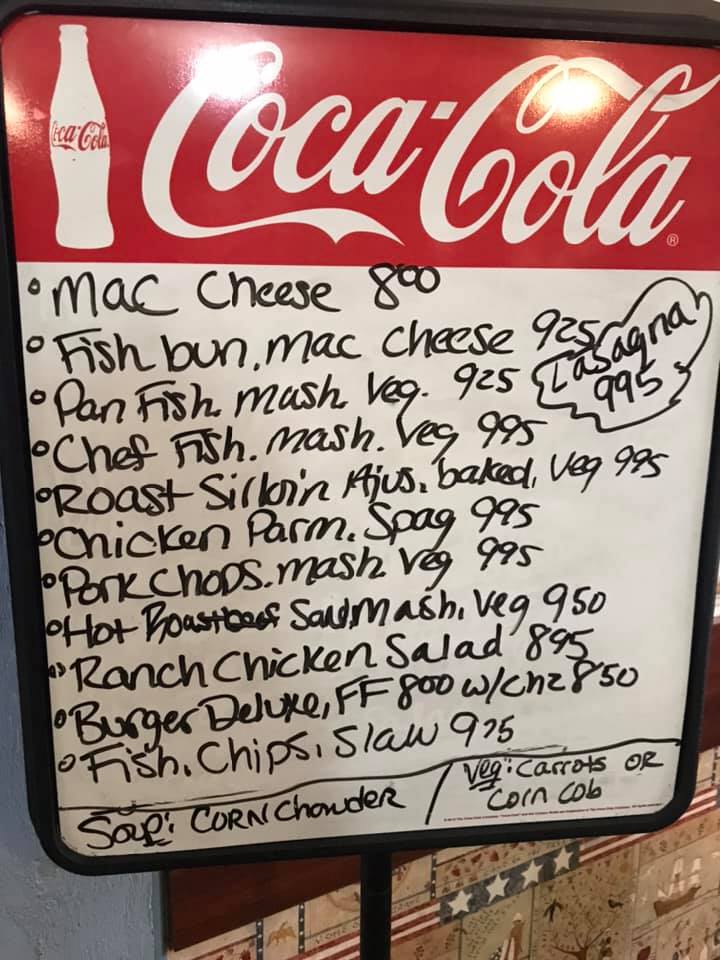 Coca-Cola
Coca-Cola ®
• Mac Cheese 800
• Fish bun, mac cheese 925
Lasagna
995
• Pan Fish. mash. Veg. 925
• Chef Fish. mash. Veg 995
• Roast Sirloin Ajus, baked, Veg 995
• Chicken Parm. Spag 995
• Pork Chops. mash Veg 995
• Hot Roastbeef Sand Mash, Veg 950
• Ranch Chicken Salad 895
• Burger Deluxe, FF 800 w/chz 850
• Fish, Chips, Slaw 925
Soup: CORN Chowder / Veg: Carrots OR
Corn Cob